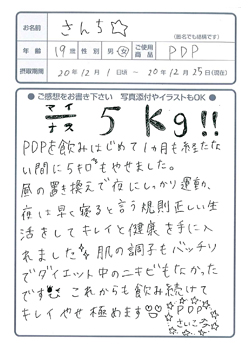 お名前
さんち☆
(匿名でも結構です)
年齢 19歳 性別 男・女 ご使用商品 PDP
摂取期間 20年12月1日頃 ～ 20年12月25日(現在)
● ご感想をお書き下さい 写真添付やイラストもOK ●
マイナス 5kg!!
PDPを飲みはじめて1ヵ月も経たな
い間に5キロもやせました。
昼の置き換えで夜にしっかり運動、
夜は早く寝ると言う規則正しい生
活をしてキレイと健康を手に入
れました 肌の調子もバッチリ
でダイエット中のニキビもなかった
です これからも飲み続けて
キレイやせ極めます
PDP
さいこぉ